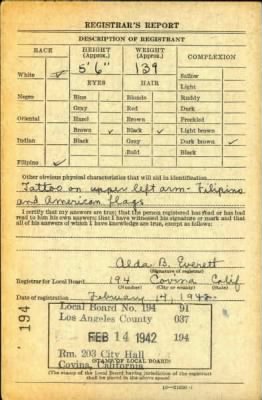 REGISTRAR'S REPORT
DESCRIPTION OF REGISTRANT
RACE HEIGHT (Approx.) WEIGHT (Approx.) COMPLEXION
5'6" 139
White ✓ Sallow
EYES HAIR Light
Negro Blue Blonde Ruddy
Gray Red Dark
Oriental Hazel Brown Freckled
Brown ✓ Black ✓ Light brown
Indian Black Gray Dark brown ✓
Bald Black
Filipino ✓
Other obvious physical characteristics that will aid in identification
Tattoo on upper left arm - Filipino
and American flags
I certify that my answers are true; that the person registered has read or has had
read to him his own answers; that I have witnessed his signature or mark and that
all of his answers of which I have knowledge are true, except as follows:
Alda B. Everett
(Signature of registrar)
Registrar for Local Board 194 Covina Calif
(Number) (City or county) (State)
Date of registration February 14, 1942
194
Local Board No. 194 91
Los Angeles County 037
FEB 14 1942 194
Rm. 203 City Hall
Covina, California
(STAMP OF LOCAL BOARD)
(The stamp of the Local Board having jurisdiction of the registrant
shall be placed in the above space)